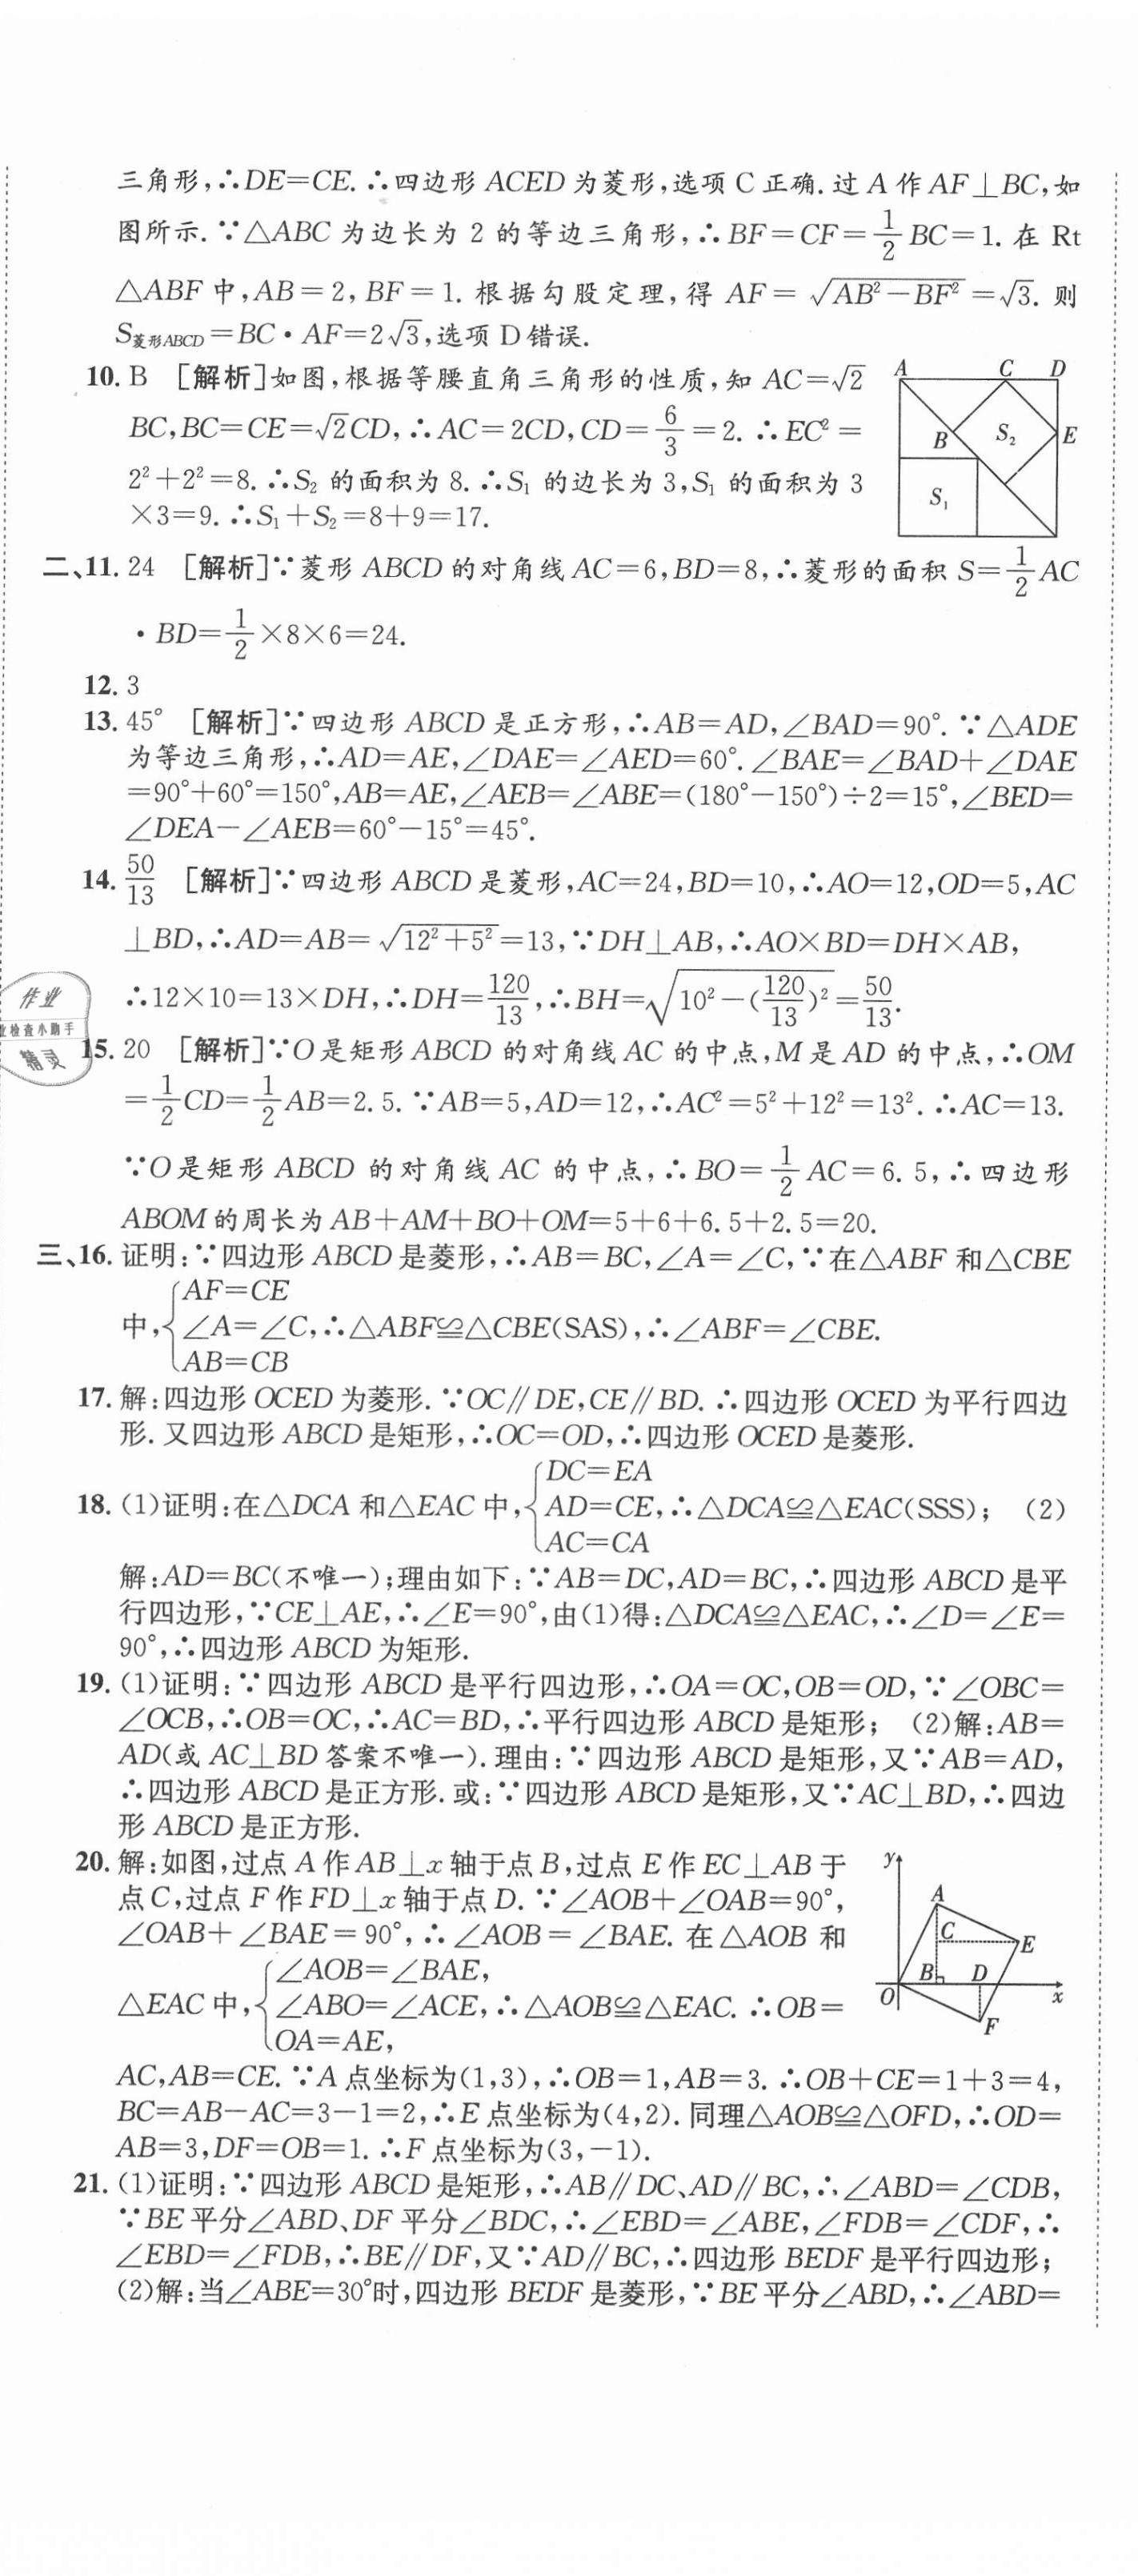 三角形,∴DE=CE.∴四边形ACED为菱形,选项C正确.过A作AF⊥BC,如
图所示.∵△ABC为边长为2的等边三角形,∴BF=CF=1/2BC=1.在Rt
△ABF中,AB=2,BF=1.根据勾股定理,得AF=√(AB²-BF²)=√3.则
S菱形ABCD=BC·AF=2√3,选项D错误.
10. B [解析]如图,根据等腰直角三角形的性质,知AC=√2
BC,BC=CE=√2CD,∴AC=2CD,CD=6/3=2.∴EC²=
2²+2²=8.∴S₂的面积为8.∴S₁的边长为3,S₁的面积为3
×3=9.∴S₁+S₂=8+9=17.
A C D
B S₂ E
S₁
二、11. 24 [解析]∵菱形ABCD的对角线AC=6,BD=8,∴菱形的面积S=1/2AC
·BD=1/2×8×6=24.
12. 3
13. 45° [解析]∵四边形ABCD是正方形,∴AB=AD,∠BAD=90°.∵△ADE
为等边三角形,∴AD=AE,∠DAE=∠AED=60°.∠BAE=∠BAD+∠DAE
=90°+60°=150°,AB=AE,∠AEB=∠ABE=(180°-150°)÷2=15°,∠BED=
∠DEA-∠AEB=60°-15°=45°.
14. 50/13 [解析]∵四边形ABCD是菱形,AC=24,BD=10,∴AO=12,OD=5,AC
⊥BD,∴AD=AB=√(12²+5²)=13,∵DH⊥AB,∴AO×BD=DH×AB,
∴12×10=13×DH,∴DH=120/13,∴BH=√(10²-(120/13)²)=50/13.
作业
业检查小助手
精灵
15. 20 [解析]∵O是矩形ABCD的对角线AC的中点,M是AD的中点,∴OM
=1/2CD=1/2AB=2.5.∵AB=5,AD=12,∴AC²=5²+12²=13².∴AC=13.
∵O是矩形ABCD的对角线AC的中点,∴BO=1/2AC=6.5,∴四边形
ABOM的周长为AB+AM+BO+OM=5+6+6.5+2.5=20.
三、16. 证明:∵四边形ABCD是菱形,∴AB=BC,∠A=∠C,∵在△ABF和△CBE
AF=CE
中,{∠A=∠C,∴△ABF≌△CBE(SAS),∴∠ABF=∠CBE.
AB=CB
17. 解:四边形OCED为菱形.∵OC∥DE,CE∥BD.∴四边形OCED为平行四边
形.又四边形ABCD是矩形,∴OC=OD,∴四边形OCED是菱形.
DC=EA
18. (1)证明:在△DCA和△EAC中,{AD=CE,∴△DCA≌△EAC(SSS); (2)
AC=CA
解:AD=BC(不唯一);理由如下:∵AB=DC,AD=BC,∴四边形ABCD是平
行四边形,∵CE⊥AE,∴∠E=90°,由(1)得:△DCA≌△EAC,∴∠D=∠E=
90°,∴四边形ABCD为矩形.
19. (1)证明:∵四边形ABCD是平行四边形,∴OA=OC,OB=OD,∵∠OBC=
∠OCB,∴OB=OC,∴AC=BD,∴平行四边形ABCD是矩形; (2)解:AB=
AD(或AC⊥BD答案不唯一).理由:∵四边形ABCD是矩形,又∵AB=AD,
∴四边形ABCD是正方形.或:∵四边形ABCD是矩形,又∵AC⊥BD,∴四边
形ABCD是正方形.
20. 解:如图,过点A作AB⊥x轴于点B,过点E作EC⊥AB于
点C,过点F作FD⊥x轴于点D.∵∠AOB+∠OAB=90°,
∠OAB+∠BAE=90°,∴∠AOB=∠BAE.在△AOB和
∠AOB=∠BAE,
△EAC中,{∠ABO=∠ACE,∴△AOB≌△EAC.∴OB=
OA=AE,
y
A
C
E
B D
O x
F
AC,AB=CE.∵A点坐标为(1,3),∴OB=1,AB=3.∴OB+CE=1+3=4,
BC=AB-AC=3-1=2,∴E点坐标为(4,2).同理△AOB≌△OFD,∴OD=
AB=3,DF=OB=1.∴F点坐标为(3,-1).
21. (1)证明:∵四边形ABCD是矩形,∴AB∥DC、AD∥BC,∴∠ABD=∠CDB,
∵BE平分∠ABD、DF平分∠BDC,∴∠EBD=∠ABE,∠FDB=∠CDF,∴
∠EBD=∠FDB,∴BE∥DF,又∵AD∥BC,∴四边形BEDF是平行四边形;
(2)解:当∠ABE=30°时,四边形BEDF是菱形,∵BE平分∠ABD,∴∠ABD=